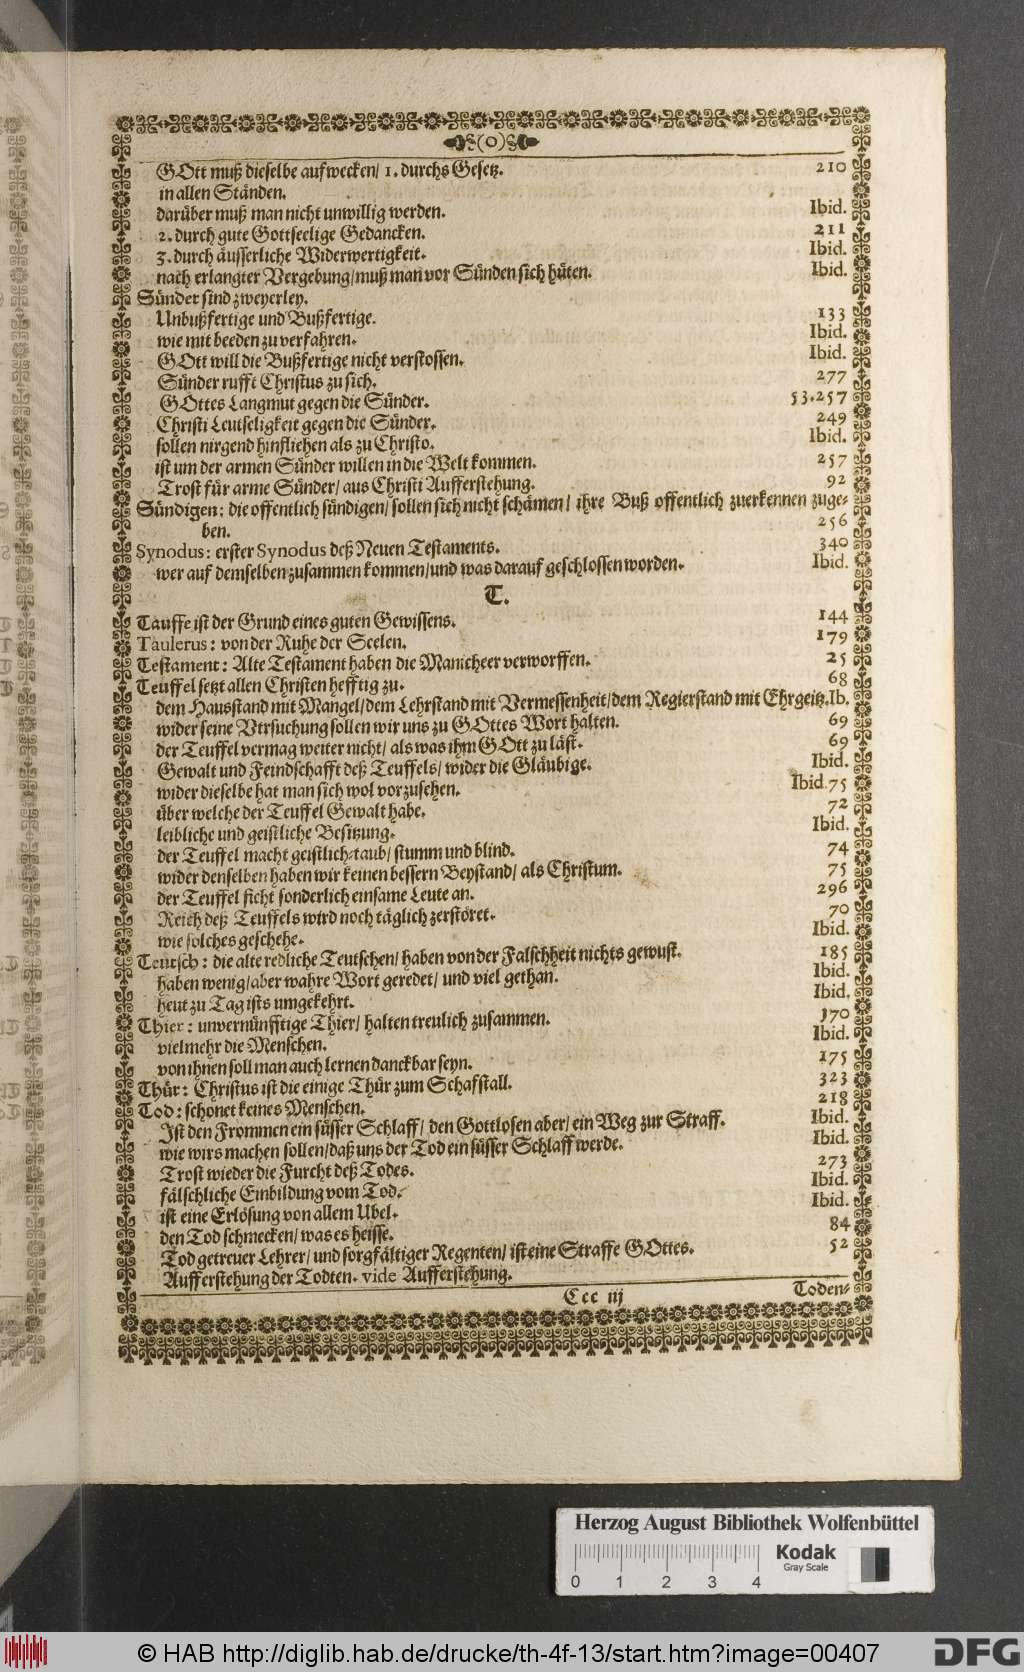 (O)
GOtt muß dieselbe aufwecken/ 1. durchs Gesetz. 210
in allen Ständen.
darüber muß man nicht unwillig werden. Ibid.
2. durch gute Gottseelige Gedancken. 211
3. durch äusserliche Widerwertigkeit. Ibid.
nach erlangter Vergebung/ muß man vor Sünden sich hüten. Ibid.
Sünder sind zweyerley.
Unbußfertige und Bußfertige. 133
wie mit beeden zu verfahren. Ibid.
GOtt will die Bußfertige nicht verstossen. Ibid.
Sünder rufft Christus zu sich. 277
GOttes Langmut gegen die Sünder. 53.257
Christi Leutseligkeit gegen die Sünder. 249
sollen nirgend hinfliehen als zu Christo. Ibid.
ist um der armen Sünder willen in die Welt kommen. 257
Trost für arme Sünder/ aus Christi Aufferstehung. 92
Sündigen: die offentlich sündigen/ sollen sich nicht schämen/ ihre Buß offentlich zuerkennen zuge-
ben. 256
Synodus: erster Synodus deß Neuen Testaments. 340
wer auf demselben zusammen kommen/ und was darauf geschlossen worden. Ibid.
T.
Tauffe ist der Grund eines guten Gewissens. 144
Taulerus: von der Ruhe der Seelen. 179
Testament: Alte Testament haben die Manicheer verworffen. 25
Teuffel setzt allen Christen hefftig zu. 68
dem Hausstand mit Mangel/ dem Lehrstand mit Vermessenheit/ dem Regierstand mit Ehrgeitz. Ib.
wider seine Versuchung sollen wir uns zu GOttes Wort halten. 69
der Teuffel vermag weiter nicht/ als was ihm GOtt zu läst. 69
Gewalt und Feindschafft deß Teuffels/ wider die Gläubige. Ibid.
wider dieselbe hat man sich wol vorzusehen. Ibid. 75
über welche der Teuffel Gewalt habe. 72
leibliche und geistliche Besitzung. Ibid.
der Teuffel macht geistlich-taub/ stumm und blind. 74
wider denselben haben wir keinen bessern Beystand/ als Christum. 75
der Teuffel ficht sonderlich einsame Leute an. 296
Reich deß Teuffels wird noch täglich zerstöret. 70
wie solches geschehe. Ibid.
Teutsch: die alte redliche Teutschen/ haben von der Falschheit nichts gewust. 185
haben wenig/ aber wahre Wort geredet/ und viel gethan. Ibid.
heut zu Tag ists umgekehrt. Ibid.
Thier: unvernünfftige Thier/ halten treulich zusammen. 170
vielmehr die Menschen. Ibid.
von ihnen soll man auch lernen danckbar seyn. 175
Thür: Christus ist die einige Thür zum Schafstall. 323
Tod: schonet keines Menschen. 218
Ist den Frommen ein süsser Schlaff/ den Gottlosen aber/ ein Weg zur Straff. Ibid.
wie wirs machen sollen/ daß uns der Tod ein süsser Schlaff werde. Ibid.
Trost wieder die Furcht deß Todes. 273
fälschliche Einbildung vom Tod. Ibid.
ist eine Erlösung von allem Ubel. Ibid.
den Tod schmecken/ was es heisse. 84
Tod getreuer Lehrer/ und sorgfältiger Regenten/ ist eine Straffe GOttes. 52
Aufferstehung der Todten. vide Aufferstehung.
Ccc iij Toden-
Herzog August Bibliothek Wolfenbüttel
Kodak
Gray Scale
0 1 2 3 4
© HAB http://diglib.hab.de/drucke/th-4f-13/start.htm?image=00407
DFG